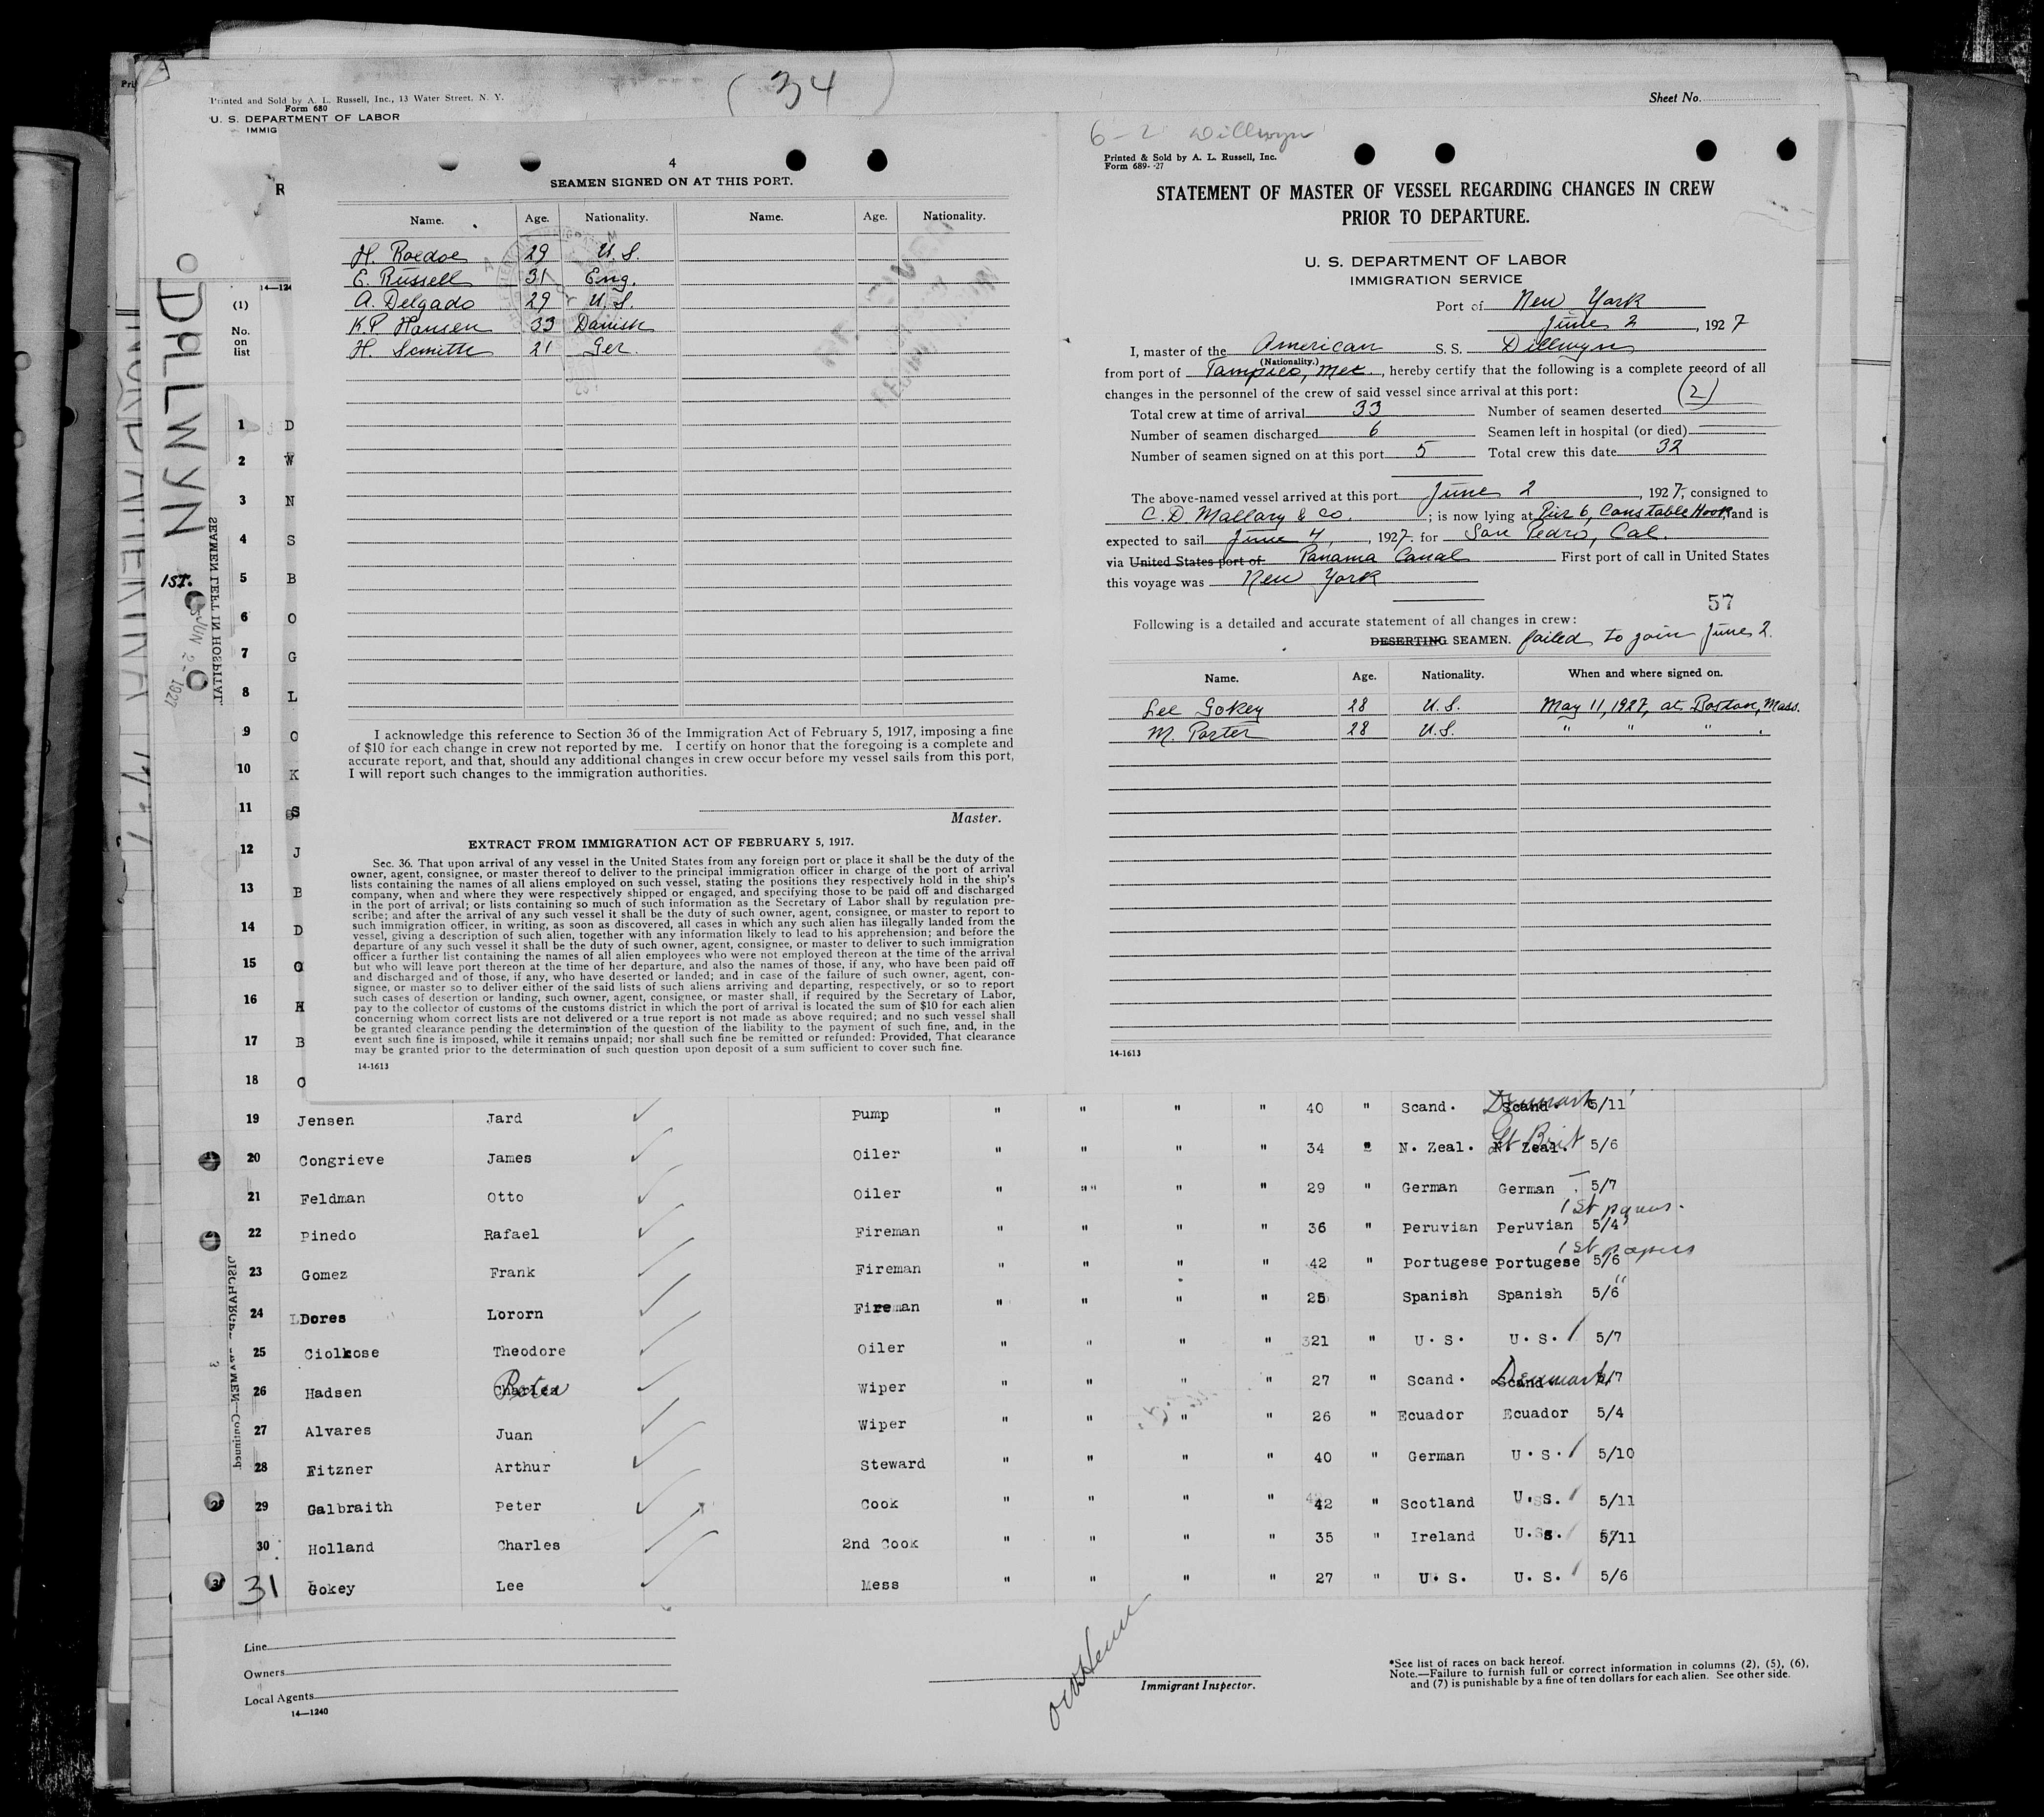 ( 34 )
Printed and Sold by A. L. Russell, Inc., 13 Water Street, N. Y.
Form 680
U. S. DEPARTMENT OF LABOR
IMMIG
Sheet No.
R
14—124
(1)
No.
on
list
DILLWYN
1ST.
JUN 2 - 1927
SEAMEN LEFT IN HOSPITAL
4
SEAMEN SIGNED ON AT THIS PORT.
Name. Age. Nationality. Name. Age. Nationality.
H. Roedoe 29 U.S.
E. Russell 31 Eng.
A. Delgado 29 U.S.
K.P. Hansen 33 Danish
H. Scmitte 21 Ger.
I acknowledge this reference to Section 36 of the Immigration Act of February 5, 1917, imposing a fine
of $10 for each change in crew not reported by me. I certify on honor that the foregoing is a complete and
accurate report, and that, should any additional changes in crew occur before my vessel sails from this port,
I will report such changes to the immigration authorities.
Master.
EXTRACT FROM IMMIGRATION ACT OF FEBRUARY 5, 1917.
Sec. 36. That upon arrival of any vessel in the United States from any foreign port or place it shall be the duty of the
owner, agent, consignee, or master thereof to deliver to the principal immigration officer in charge of the port of arrival
lists containing the names of all aliens employed on such vessel, stating the positions they respectively hold in the ship's
company, when and where they were respectively shipped or engaged, and specifying those to be paid off and discharged
in the port of arrival; or lists containing so much of such information as the Secretary of Labor shall by regulation pre-
scribe; and after the arrival of any such vessel it shall be the duty of such owner, agent, consignee, or master to report to
such immigration officer, in writing, as soon as discovered, all cases in which any such alien has illegally landed from the
vessel, giving a description of such alien, together with any information likely to lead to his apprehension; and before the
departure of any such vessel it shall be the duty of such owner, agent, consignee, or master to deliver to such immigration
officer a further list containing the names of all alien employees who were not employed thereon at the time of the arrival
but who will leave port thereon at the time of her departure, and also the names of those, if any, who have been paid off
and discharged and of those, if any, who have deserted or landed; and in case of the failure of such owner, agent, con-
signee, or master so to deliver either of the said lists of such aliens arriving and departing, respectively, or so to report
such cases of desertion or landing, such owner, agent, consignee, or master shall, if required by the Secretary of Labor,
pay to the collector of customs of the customs district in which the port of arrival is located the sum of $10 for each alien
concerning whom correct lists are not delivered or a true report is not made as above required; and no such vessel shall
be granted clearance pending the determination of the question of the liability to the payment of such fine, and, in the
event such fine is imposed, while it remains unpaid; nor shall such fine be remitted or refunded: Provided, That clearance
may be granted prior to the determination of such question upon deposit of a sum sufficient to cover such fine.
14-1613
6-2 Dillwyn
Printed & Sold by A. L. Russell, Inc.
Form 689- -27
STATEMENT OF MASTER OF VESSEL REGARDING CHANGES IN CREW
PRIOR TO DEPARTURE.
U. S. DEPARTMENT OF LABOR
IMMIGRATION SERVICE
Port of New York
June 2, 1927
I, master of the American S. S. Dillwyn
(Nationality.)
from port of Tampico, Mex., hereby certify that the following is a complete record of all
changes in the personnel of the crew of said vessel since arrival at this port:
Total crew at time of arrival 33 Number of seamen deserted (2)
Number of seamen discharged 6 Seamen left in hospital (or died)
Number of seamen signed on at this port 5 Total crew this date 32
The above-named vessel arrived at this port June 2, 1927, consigned to
C. D. Mallary & Co.; is now lying at Pier 6, Constable Hook, and is
expected to sail June 4, 1927, for San Pedro, Cal.
via United States port of Panama Canal First port of call in United States
this voyage was New York
57
Following is a detailed and accurate statement of all changes in crew:
DESERTING SEAMEN. failed to join June 2.
Name. Age. Nationality. When and where signed on.
Lee Gokey 28 U.S. May 11, 1927, at Boston, Mass.
M. Porter 28 U.S. " " " .
14-1613
1 D
2 W
3 N
4 S
5 B
6 O
7 G
8 L
9 C
10 K
11 S
12 J
13 B
14 D
15 G
16 H
17 B
18 C
19 Jensen Jard Pump " " " " 40 " Scand. Scand. Denmark 5/11
20 Congrieve James Oiler " " " " 34 " N. Zeal. N. Zeal. Gt Brit 5/6
21 Feldman Otto Oiler " "" " " 29 " German German 5/7
1st papers.
22 Pinedo Rafael Fireman " " " " 36 " Peruvian Peruvian 5/4
1st papers
23 Gomez Frank Fireman " " " " 42 " Portugese Portugese 5/6
24 Dores Lororn Fireman " " " " 25 Spanish Spanish 5/6
25 Ciolkose Theodore Oiler " " " " 21 " U. S. U. S. 5/7
26 Hadsen Charles Peter Wiper " " " " 27 " Scand. Scand. Denmark 5/7
27 Alvares Juan Wiper " " " " 26 " Ecuador Ecuador 5/4
28 Fitzner Arthur Steward " " " " 40 " German U. S. 5/10
29 Galbraith Peter Cook " " " " 42 " Scotland U. S. 5/11
30 Holland Charles 2nd Cook " " " " 35 " Ireland U. S. 5/11
31 Gokey Lee Mess " " " " 27 " U. S. U. S. 5/6
Line
Owners
Local Agents
14—1240
Immigrant Inspector.
*See list of races on back hereof.
Note.—Failure to furnish full or correct information in columns (2), (5), (6),
and (7) is punishable by a fine of ten dollars for each alien. See other side.